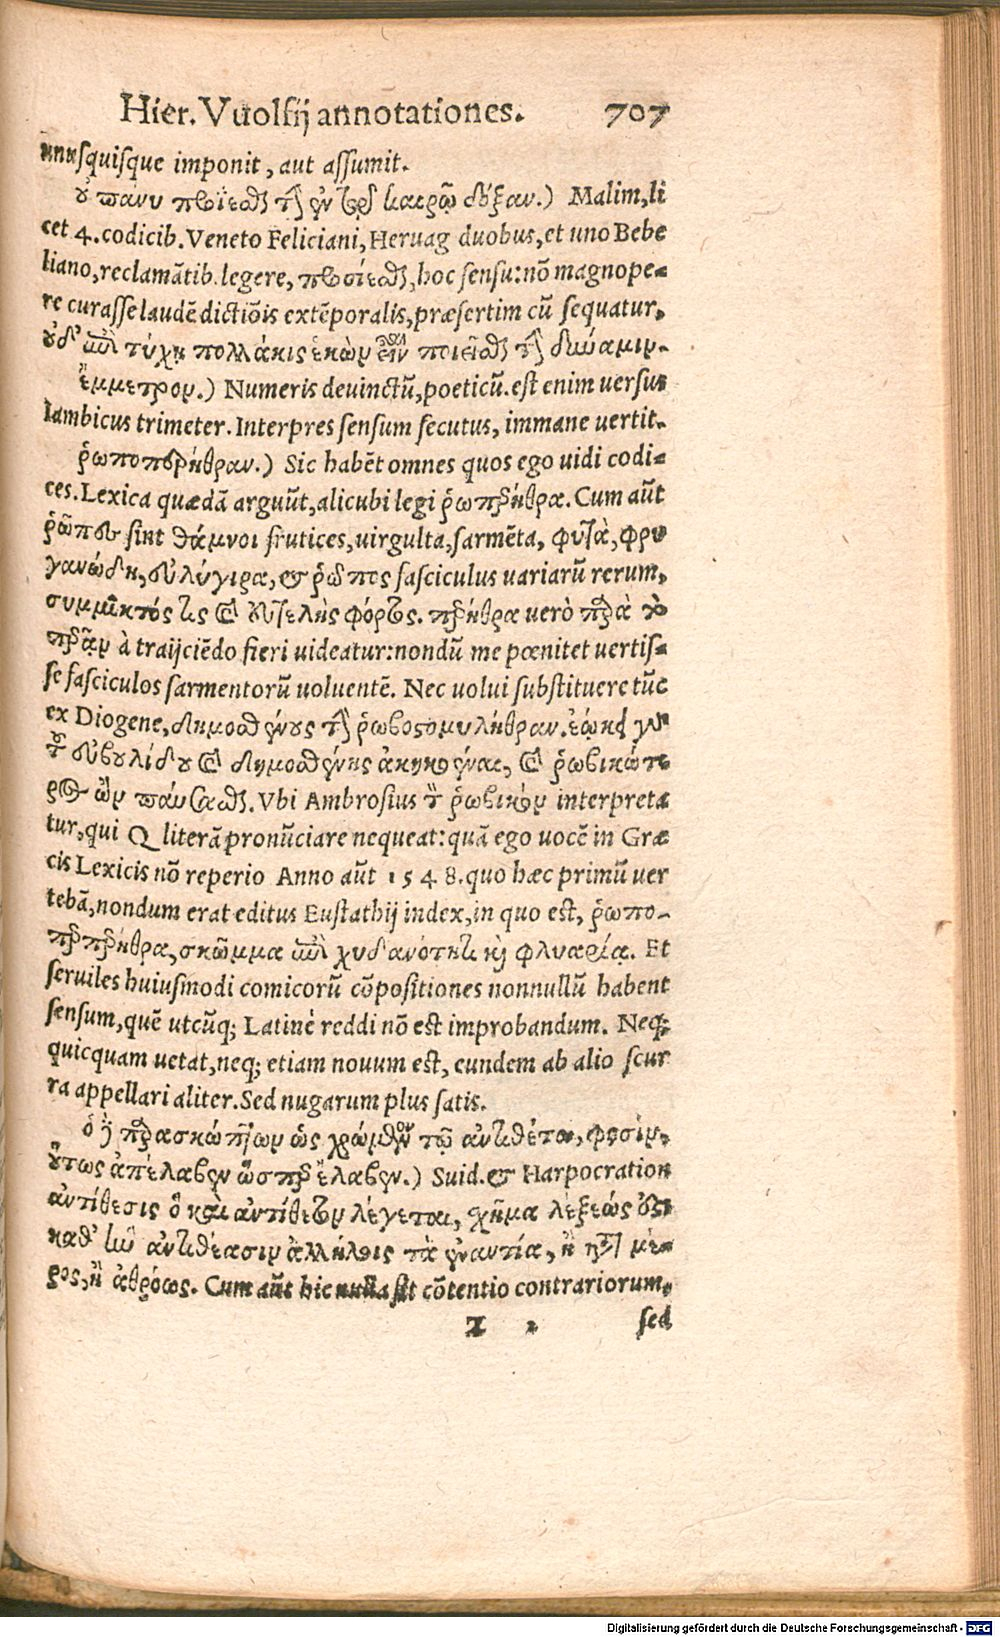 Hier. Vuolfij annotationes. 707
unusquisque imponit, aut assumit.
οὐ πάνυ προΐεσθαι τὴν ἐν τοῖς καιρῷ δόξαν.) Malim, li
cet 4. codicib. Veneto Feliciani, Heruag duobus, et uno Bebe
liano, reclamātib. legere, προσίεσθαι, hoc sensu: nō magnope-
re curasse laudē dictiōis extēporalis, præsertim cū sequatur,
οὐδ' ἐπὶ τύχῃ πολλάκις ἑκὼν εἶναι ποιεῖσθαι τὴν δύναμιν.
ἔμμετρον.) Numeris deuinctū, poeticū. est enim uersus
Iambicus trimeter. Interpres sensum secutus, immane uertit.
ῥωποπερήθραν.) Sic habēt omnes quos ego uidi codi-
ces. Lexica quædā arguūt, alicubi legi ῥωπερήθρα. Cum aūt
ῥῶπες sint θάμνοι frutices, uirgulta, sarmēta, φυτὰ, φρυ
γανώδη, εὐλύγιρα, & ῥῶπος fasciculus uariarū rerum,
συμμικτός τις καὶ εὐτελὴς φόρτος. περήθρα uerò παρὰ τὸ
περᾷν à traijciēdo fieri uideatur: nondū me pœnitet uertis-
se fasciculos sarmentorū uoluentē. Nec uolui substituere tūc
ex Diogene, δημοσθένους τὴν ῥωβοστομυλήθραν. ἐῴκει γὰρ
τοῦ εὐβουλίδου καὶ δημοσθένης ἀκηκοέναι, καὶ ῥωβικώτε-
ρος ὢν παύσασθαι. Vbi Ambrosius τὸν ῥωβικὸν interpreta
tur, qui Q literā pronūciare nequeat: quā ego uocē in Græ
cis Lexicis nō reperio Anno aūt 1548. quo hæc primū uer
tebā, nondum erat editus Eustathij index, in quo est, ῥωπο-
περπερήθρα, σκῶμμα ἐπὶ χυδαιότητι καὶ φλυαρίᾳ. Et
seruiles huiusmodi comicorū cōpositiones nonnullū habent
sensum, quē utcūq; Latinè reddi nō est improbandum. Neq;
quicquam uetat, neq; etiam nouum est, eundem ab alio scur
ra appellari aliter. Sed nugarum plus satis.
ὁ παρασκώπτων ὡς χρώμενον τῷ ἀντιθέτῳ, φησὶν,
οὕτως ἀπέλαβεν ὥσπερ ἔλαβεν.) Suid. & Harpocration
ἀντίθεσις ὃ καὶ ἀντίθετον λέγεται, σχῆμα λέξεώς ἐστι
καθ' ἣν ἀντιθέασιν ἀλλήλοις τὰ ἐναντία, ἢ κατὰ μέ-
ρος, ἢ ἀθρόως. Cum aūt hic nulla sit cōtentio contrariorum,
T 2 sed
Digitalisierung gefördert durch die Deutsche Forschungsgemeinschaft - DFG